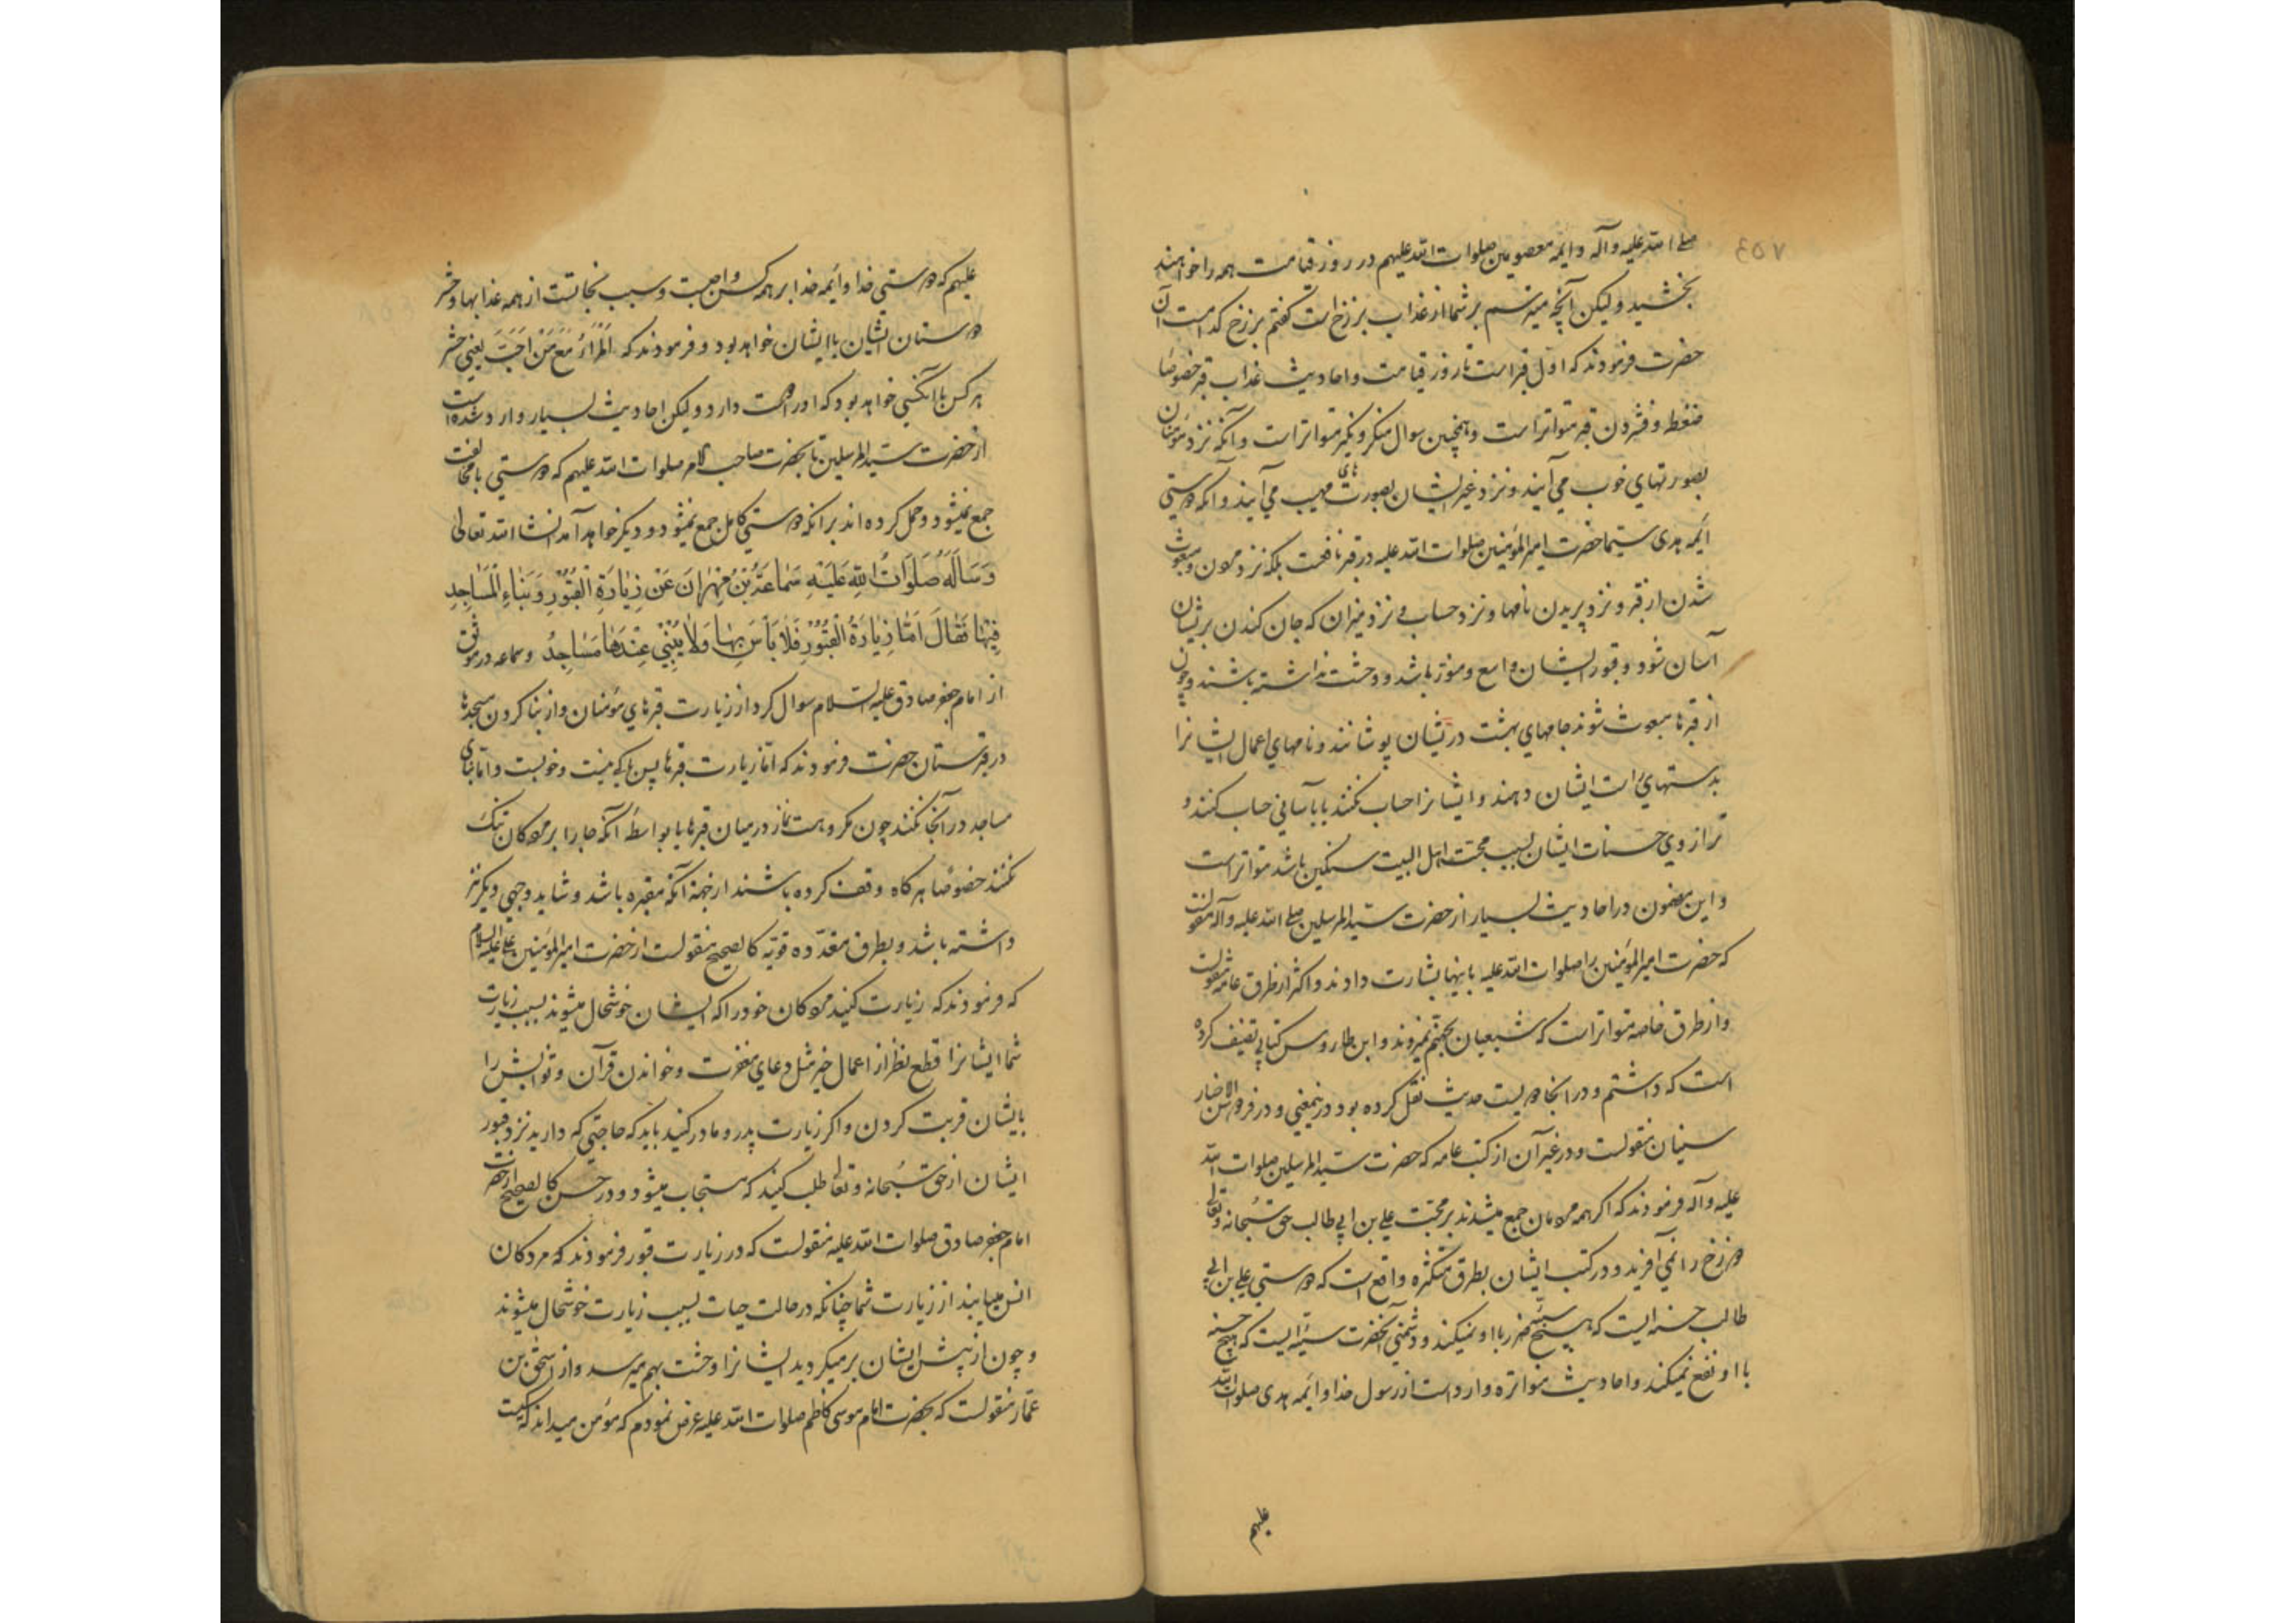 ٤٥٧
صلى الله عليه وآله وأئمه معصومين صلوات الله عليهم در روز قيامت همه را خواهند
بخشيد وليكن آنچه ميترسم بر شما از عذاب برزخ است گفتم برزخ كدامست آن
حضرت فرمودند كه اول قبر است تا روز قيامت واحاديث عذاب قبر خصوصًا
ضغطه وفشردن قبر متواتر است وهمچنين سوال منكر ونكير متواتر است وآنكه نزد مؤمنان
بصورتهاي خوب مي آيند ونزد غير ايشان بصورت هاى مهيب مي آيند وآنكه دوستي
ائمه هدى سيما حضرت امير المؤمنين صلوات الله عليه در قبر نافعست بلكه نزد مردن ومبعوث
شدن از قبر ونزد پريدن نامها ونزد حساب ونزد ميزان كه جان كندن بر ايشان
آسان شود وقبور ايشان واسع ومنور باشد ووحشت نداشته باشند وچون
از قبرها مبعوث شوند جامهاي بهشت در ايشان پوشانند ونامهاي اعمال ايشانرا
بدستهاي راست ايشان دهند وايشانرا حساب نكنند يا بآساني حساب كنند و
ترازوي حسنات ايشان بسبب محبت اهل البيت سنگين باشد متواتر است
واين مضمون در احاديث بسيار از حضرت سيد المرسلين صلى الله عليه وآله منقولست
كه حضرت امير المؤمنين را صلوات الله عليه باينها بشارت دادند واكثر از طرق عامه منقولست
واز طرق خاصه متواتر است كه شيعيان بجهنم نميروند وابن طاوس كتابي تصنيف كرده
است كه داشتم ودر آنجا دويست حديث نقل كرده بود درينمعني ودر فردوس الاخبار
سنيان منقولست ودر غير آن از كتب عامه كه حضرت سيد المرسلين صلوات الله
عليه وآله فرمودند كه اگر همه مردمان جمع ميشدند بر محبت علي بن ابي طالب حق سبحانه وتعالى
دوزخ را نمي آفريد ودر كتب ايشان بطرق متكثره واقع است كه دوستي علي بن ابي
طالب حسنه ايست كه هيچ سيئه ضرر با او نميكند ودشمني آنحضرت سيئه ايست كه هيچ حسنه
با او نفع نميكند واحاديث متواتره وارد است از رسول خدا وائمه هدى صلوات الله
عليهم
عليهم كه دوستي خدا وأئمه خدا بر همه كس واجبست وسبب نجاتست از همه عذابها وحشر
دوستان ايشان با ايشان خواهد بود وفرمودند كه اَلْمَرْءُ مَعَ مَنْ اَحَبَّ يعني حشر
هر كس با آنكسي خواهد بود كه او را دوست دارد وليكن احاديث بسيار وارد شده است
از حضرت سيد المرسلين تا بحضرت صاحب الامر صلوات الله عليهم كه دوستي با مخالفت
جمع نميشود وحمل كرده اند بر آنكه دوستي كامل جمع نميشود وديگر خواهد آمد انشا الله تعالى
وَسَأَلَهُ صَلَوَاتُ اللهِ عَلَيْهِ سَمَاعَةُ بْنُ مِهْرَانَ عَنْ زِيَارَةِ الْقُبُورِ وَبِنَاءِ الْمَسَاجِدِ
فِيهَا فَقَالَ اَمَّا زِيَارَةُ الْقُبُورِ فَلَا بَأْسَ بِهَا وَلَا يُبْنَى عِنْدَهَا مَسَاجِدُ وسماعه در موثق
از امام جعفر صادق عليه السلام سوال كرد از زيارت قبرهاي مؤمنان واز بنا كردن مسجدها
در قبرستان حضرت فرمودند كه اما زيارت قبرها پس باكي نيست وخوبست واما بناى
مساجد در آنجا نكنند چون مكروهست نماز در ميان قبرها يا بواسطه آنكه جا را بر مردگان تنگ
نكنند خصوصًا هرگاه وقف كرده باشند از جهة آنكه مقبره باشد وشايد وجهي ديگر نيز
داشته باشد وبطرق متعدده قويه كالصحيح منقولست از حضرت امير المؤمنين علي عليه السلام
كه فرمودند كه زيارت كنيد مردگان خود را كه ايشان خوشحال ميشوند بسبب زيارت
شما ايشانرا قطع نظر از اعمال خير مثل دعاي مغفرت وخواندن قرآن وثوابش را
بايشان قربت كردن واگر زيارت پدر ومادر كنيد بايد كه حاجتي كه داريد نزد قبور
ايشان از حق سبحانه وتعالى طلب كنيد كه مستجاب ميشود ودر حسن كالصحيح از حضرت
امام جعفر صادق صلوات الله عليه منقولست كه در زيارت قبور فرمودند كه مردگان
انس مييابند از زيارت شما چنانكه در حالت حيات بسبب زيارت خوشحال ميشوند
وچون از پيش ايشان برميگرديد ايشانرا وحشت بهم ميرسد واز اسحق بن
عمار منقولست كه بحضرت امام موسى كاظم صلوات الله عليه عرض نمودم كه مؤمن ميداند كه كيست